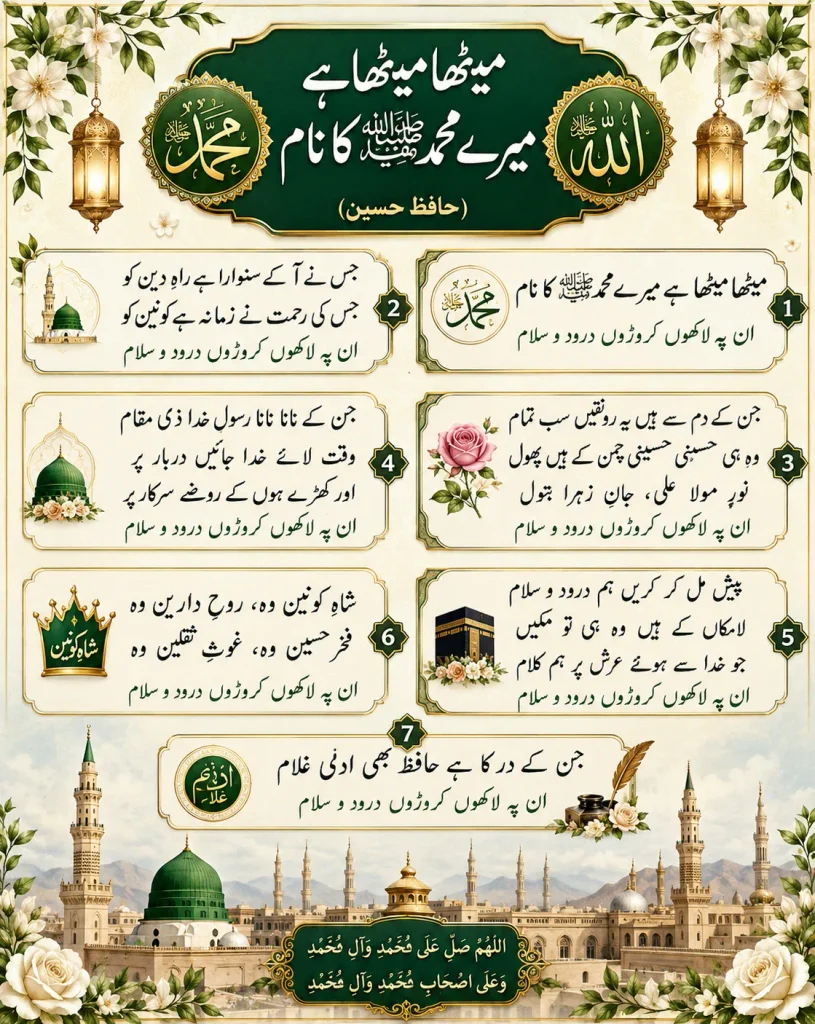 میٹھا میٹھا ہے
میرے محمد ﷺ کا نام
(حافظ حسین)
الله
محمد
1
میٹھا میٹھا ہے میرے محمد ﷺ کا نام
ان پہ لاکھوں کروڑوں درود و سلام
محمد
2
جس نے آ کے سنوارا ہے راہِ دین کو
جس کی رحمت نے زمانہ ہے کونین کو
ان پہ لاکھوں کروڑوں درود و سلام
3
جن کے دم سے ہیں یہ رونقیں سب تمام
وہ ہی حسنی حسینی چمن کے ہیں پھول
نورِ مولا علی، جانِ زہرا بتول
ان پہ لاکھوں کروڑوں درود و سلام
4
جن کے نانا نانا رسولِ خدا ذی مقام
وقت لائے خدا جائیں دربار پر
اور کھڑے ہوں کے روضے سرکار پر
ان پہ لاکھوں کروڑوں درود و سلام
5
پیش مل کر کریں ہم درود و سلام
لامکاں کے ہیں وہ ہی تو مکیں
جو خدا سے ہوئے عرش پر ہم کلام
ان پہ لاکھوں کروڑوں درود و سلام
6
شاہِ کونین وہ، روحِ دارین وہ
فخر حسین وہ، غوثِ ثقلین وہ
ان پہ لاکھوں کروڑوں درود و سلام
شاہِ کونین
7
جن کے در کا ہے حافظ بھی ادنٰی غلام
ان پہ لاکھوں کروڑوں درود و سلام
غلام
اللهم صل على محمد وآل محمد
وعلى اصحاب محمد وآل محمد